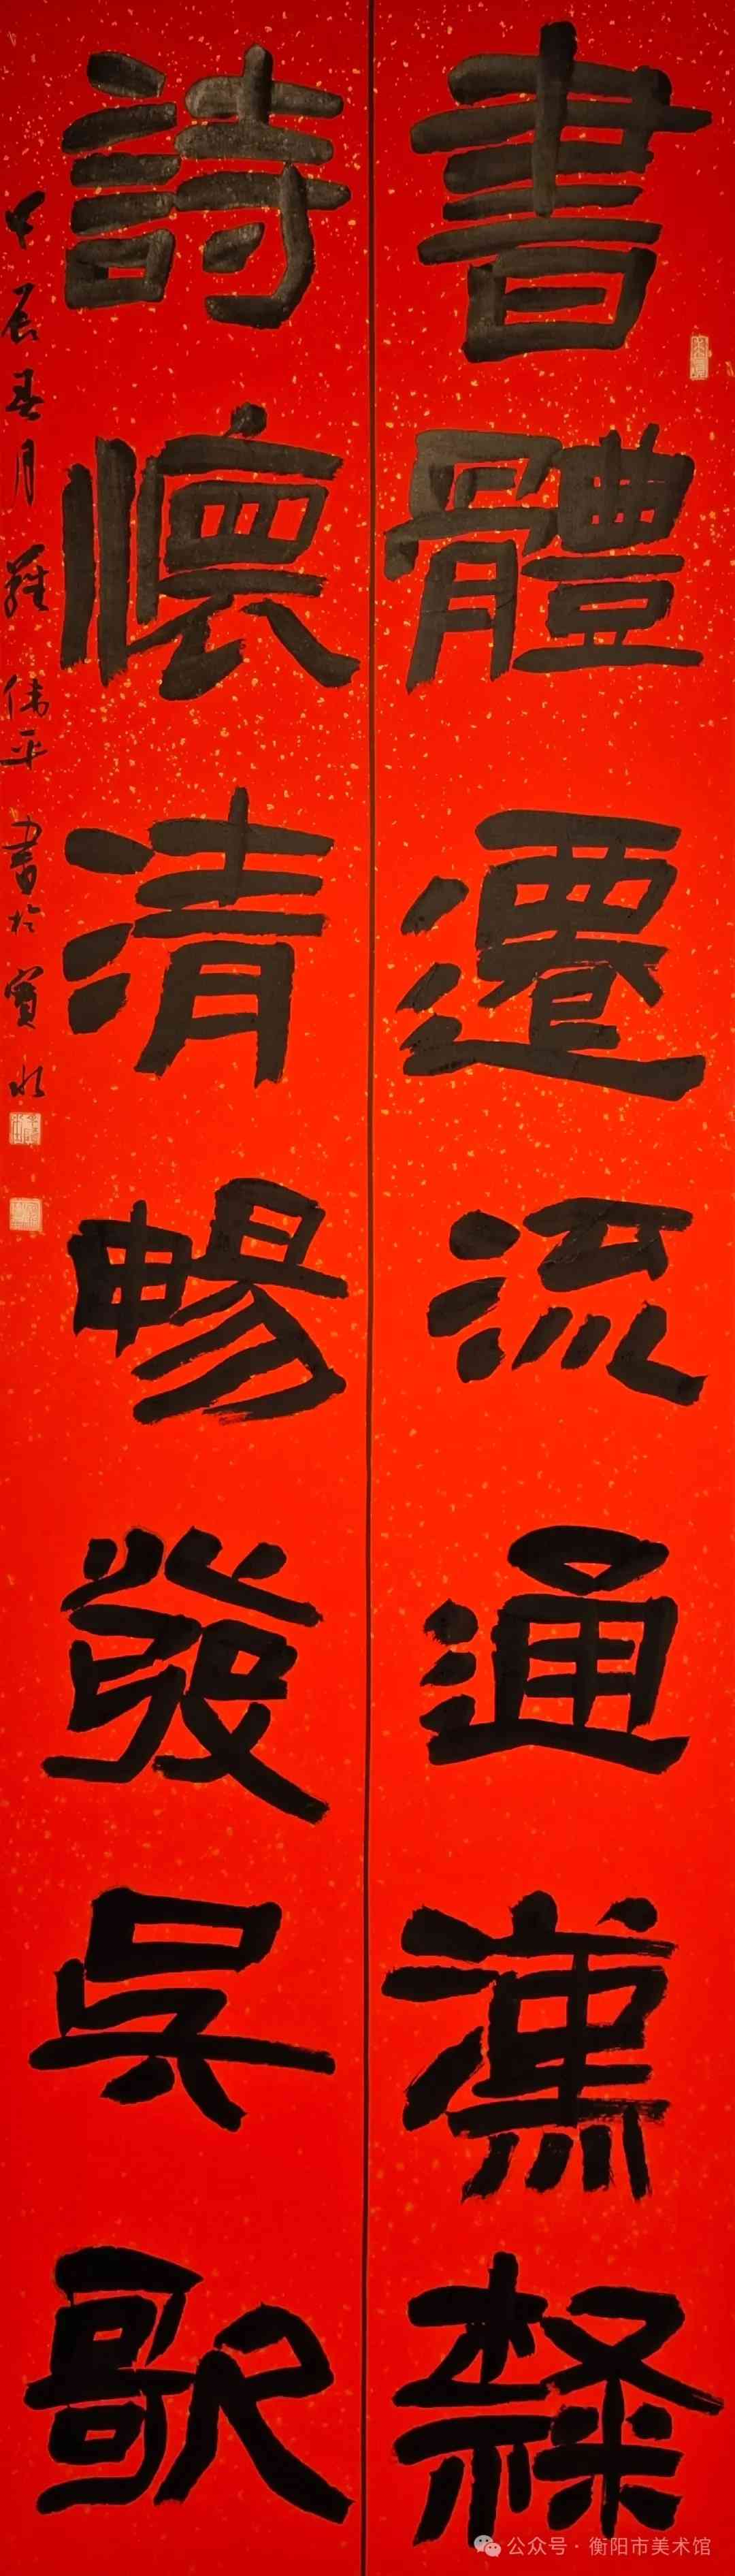 書體遷流通漢隸
詩懷清暢發吳歌
甲辰春月羅偉平書於
公众号·衡阳市美术馆